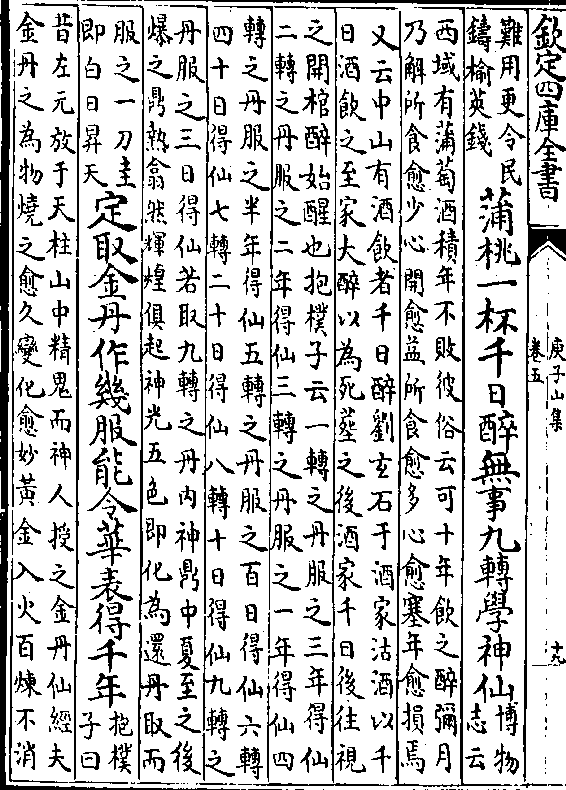 欽定四庫全書
庚子山集
卷五
十九
難用更令民
鑄榆莢錢
蒲桃一杯千日醉無事九轉學神仙
博物
志云
西域有蒲萄酒積年不敗彼俗云可十年飲之醉彌月
乃解所食愈少心開愈益所食愈多心愈塞年愈損焉
又云中山有酒飲者千日醉劉玄石于酒家沽酒以千
日酒飲之至家大醉以為死葬之後酒家千日後往視
之開棺醉始醒也抱樸子云一轉之丹服之三年得仙
二轉之丹服之二年得仙三轉之丹服之一年得仙四
轉之丹服之半年得仙五轉之丹服之百日得仙六轉
四十日得仙七轉二十日得仙八轉十日得仙九轉之
丹服之三日得仙若取九轉之丹内神鼎中夏至之後
爆之鼎熱翕然輝煌俱起神光五色即化為還丹取而
服之一刀圭
即白日昇天
定取金丹作幾服能令華表得千年
抱樸
子曰
昔左元放于天柱山中精鬼而神人授之金丹仙經夫
金丹之為物燒之愈久變化愈妙黃金入火百煉不消